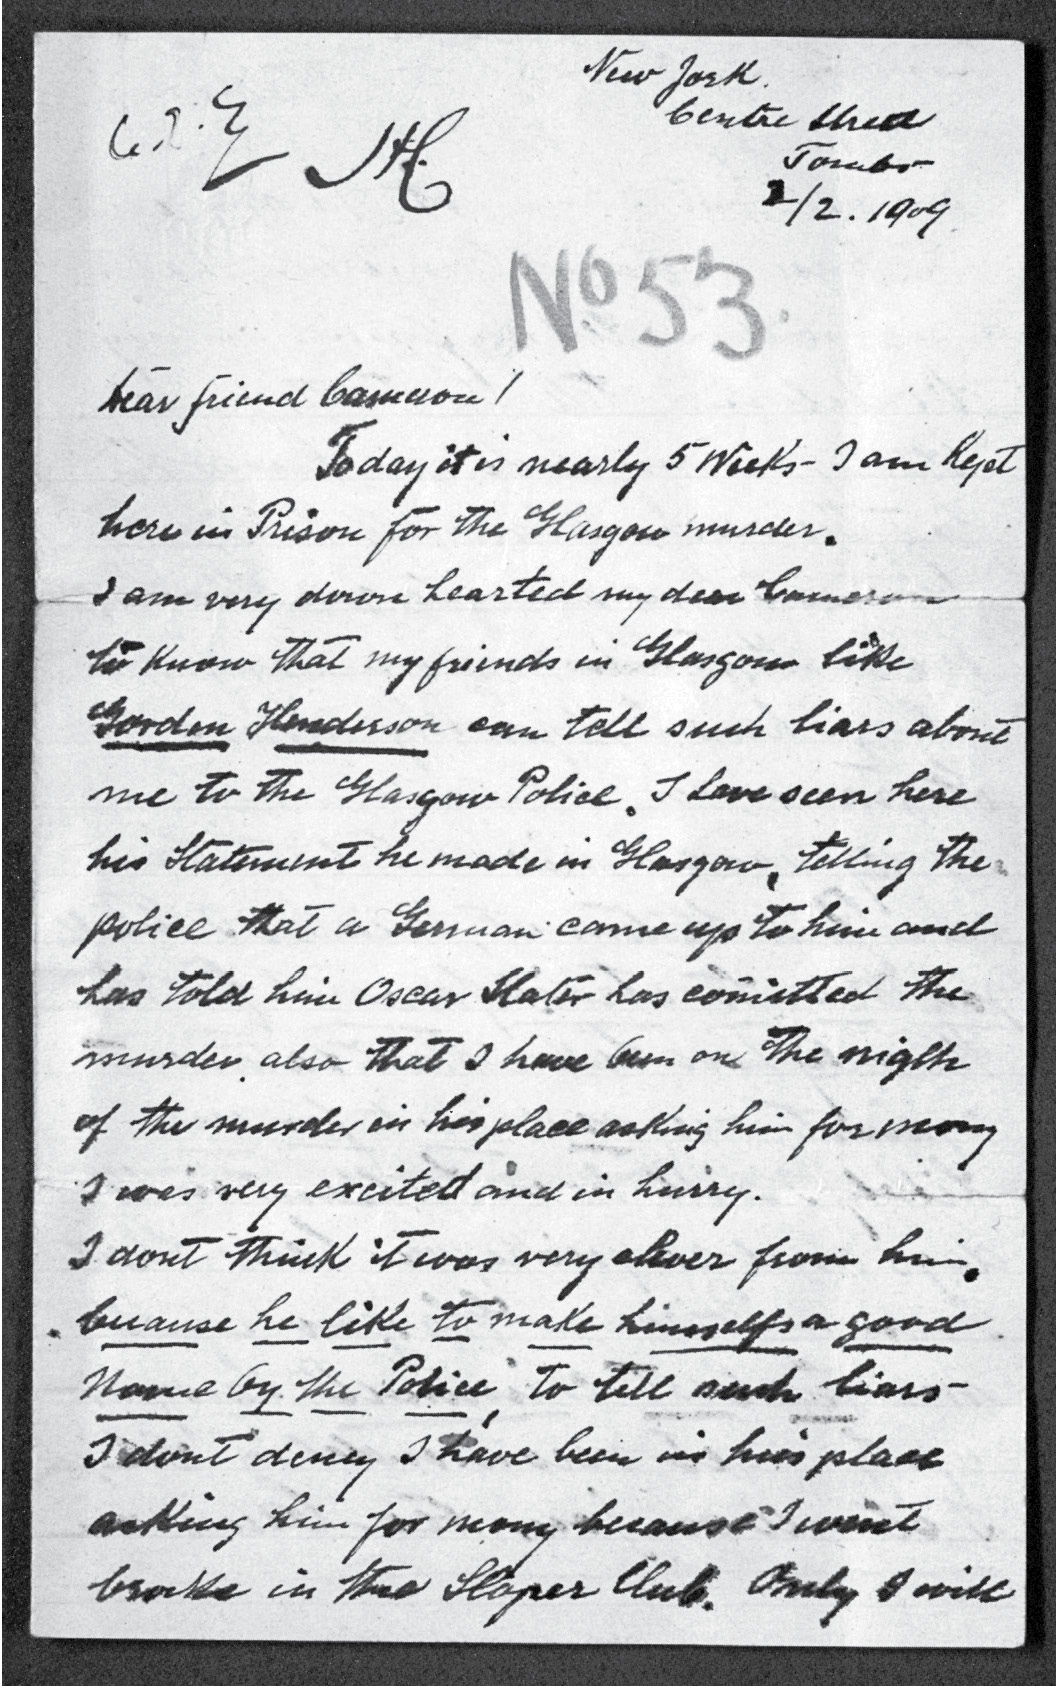 New York.
Centre Street
Tombs
2/2. 1909.
No 53.
Dear friend Cameron!
Today it is nearly 5 Weeks - I am Kept
here in Prison for the Glasgow murder.
I am very down hearted my dear Cameron
to Know that my friends in Glasgow like
Gordon Henderson can tell such liars about
me to the Glasgow Police. I have seen here
his Statement he made in Glasgow, telling the
police that a German came up to him and
has told him Oscar Slater has comitted the
murder, also that I have been on the nigth
of the murder in his place asking him for mony
I was very excited and in hurry.
I dont think it was very clever from him,
because he like to make himselfs a good
Name by the Police, to tell such liars -
I dont deney I have been in his place
asking him for mony because I went
broke in the Sloper Club. Only I will